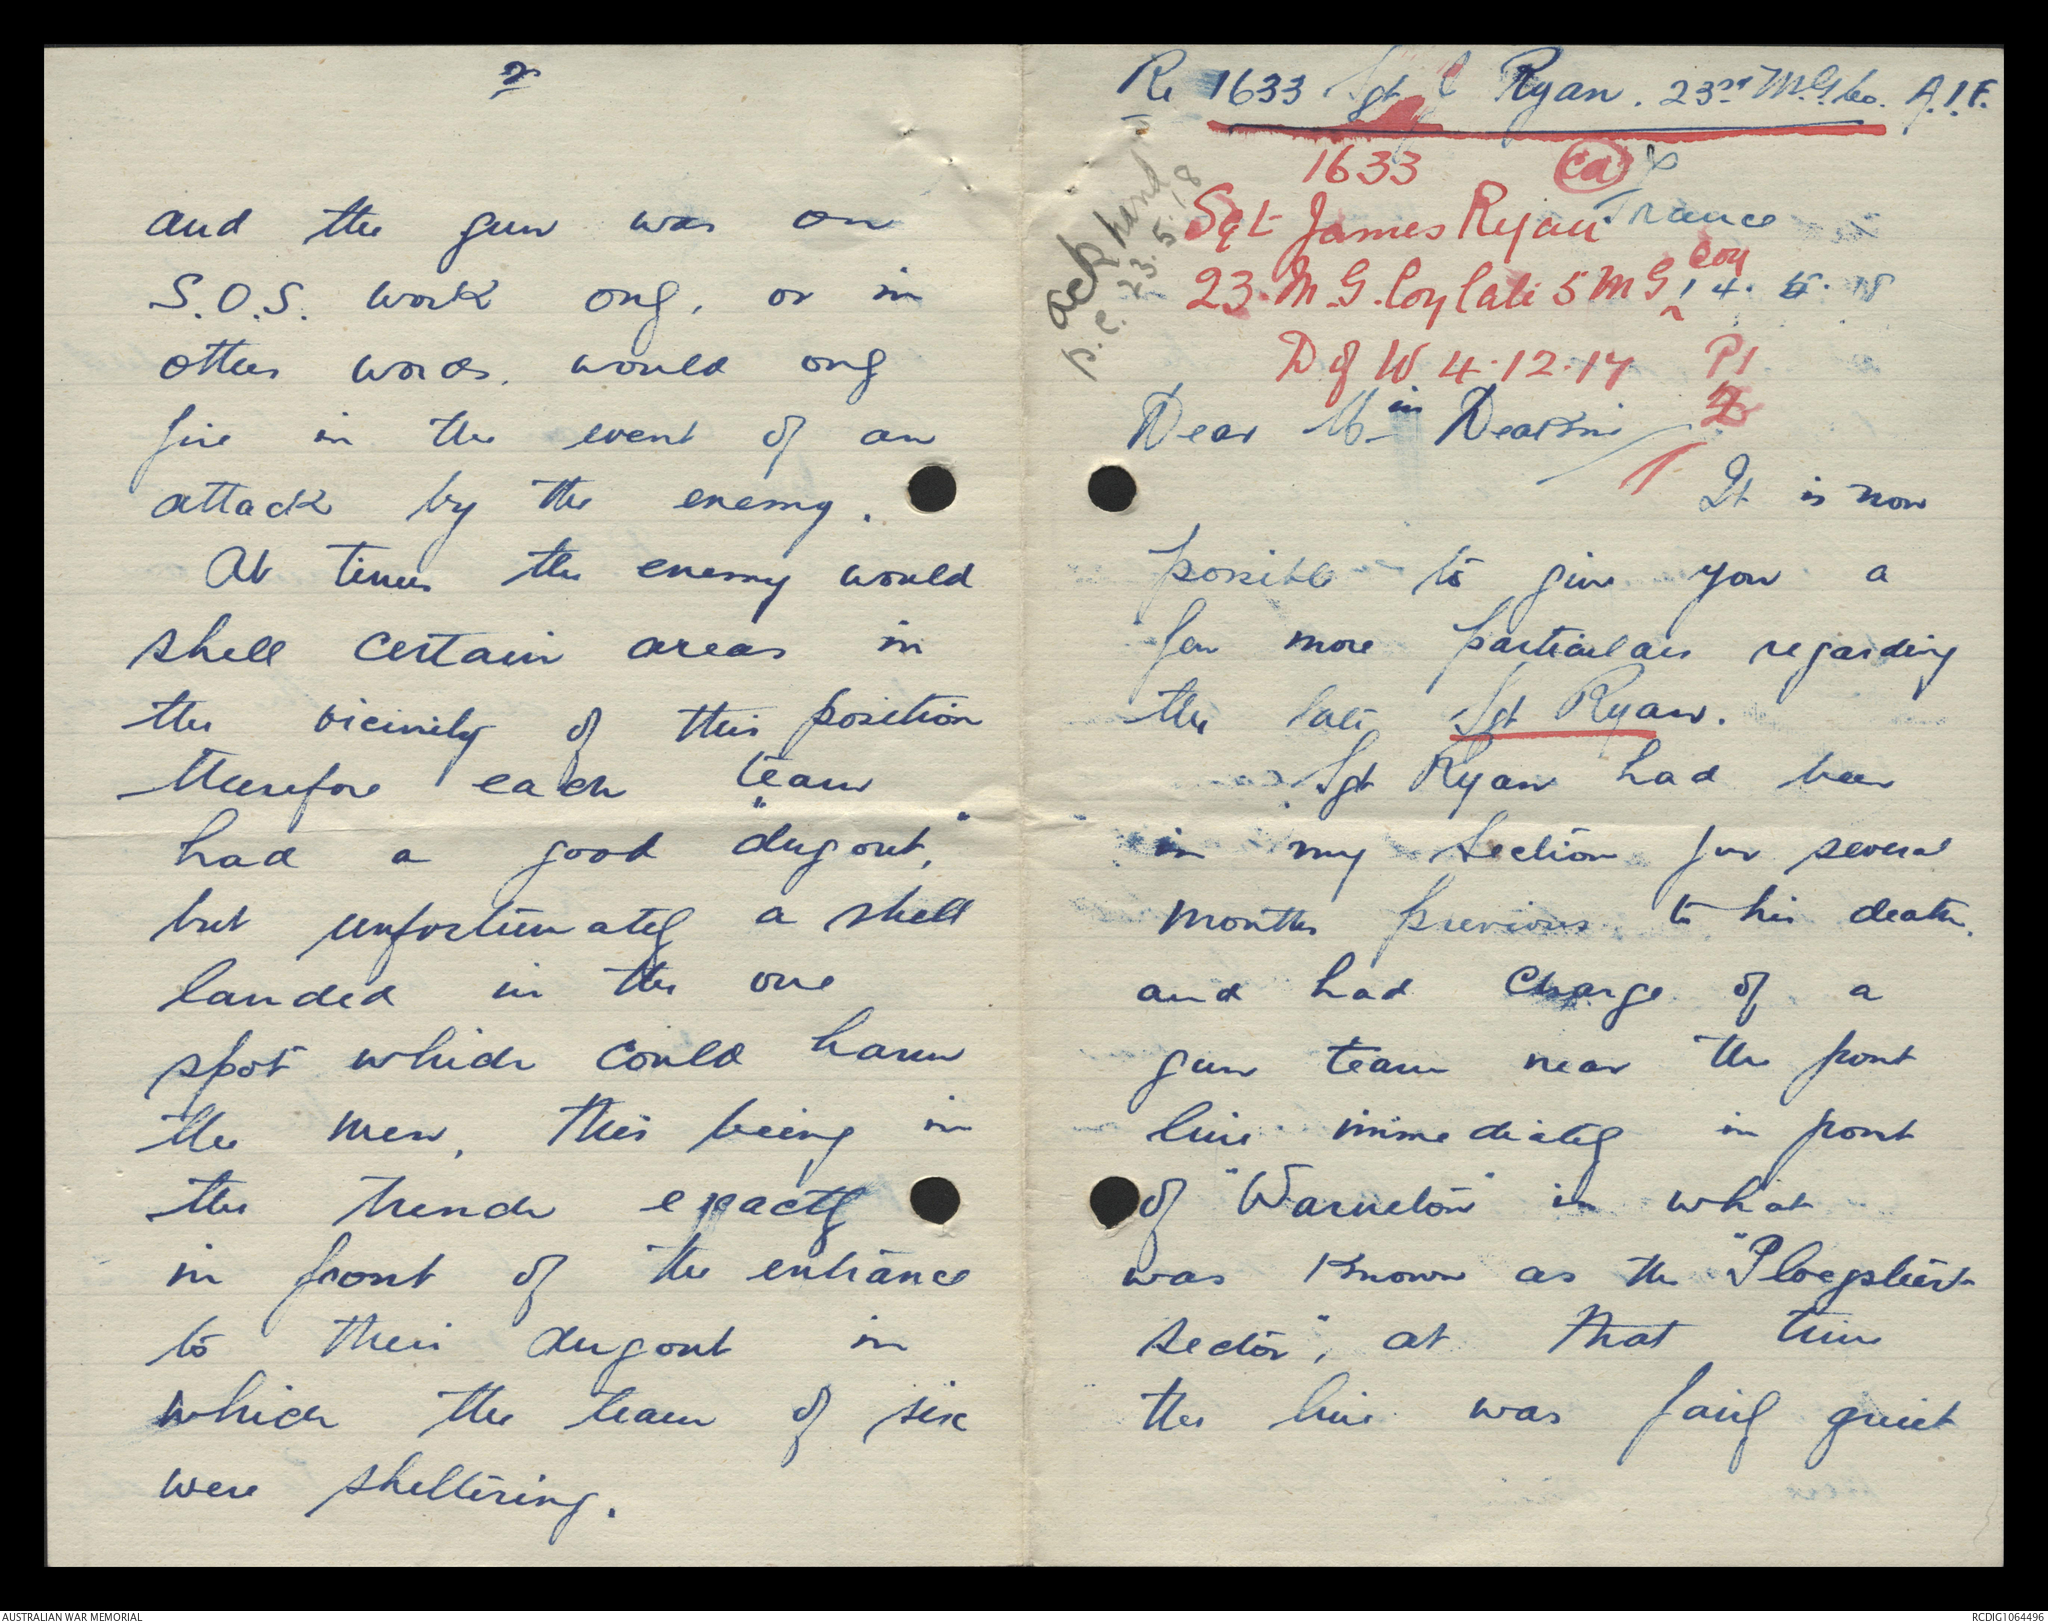 2
and the gun was on
S.O.S. work only, or in
other words, would only
fire in the event of an
attack by the enemy.
At times the enemy would
shell certain areas in
the vicinity of this position
therefore each team
had a good "dugout,"
but unfortunately a shell
landed in the one
spot which could harm
the men, this being in
the trench exactly
in front of the entrance
to their dugout in
which the team of six
were sheltering.
Re 1633 Sgt J Ryan. 23rd M.G. Co. A.I.F.
1633 Ca
Sgt James Ryan France
23. M.G. Coy late 5 M G Coy 14. 5. 18
D of W 4.12.17 P1
2
ack hand
p.c. 23.5.18
Dear Miss Deakin
It is now
possible to give you a
few more particulars regarding
the late Sgt Ryan.
Sgt Ryan had been
in my Section for several
months previous to his death.
and had charge of a
gun team near the front
line immediately in front
of "Warneton" in what
was known as the "Ploegsteert
Sector", at that time
the line was fairly quiet
AUSTRALIAN WAR MEMORIAL
RCDIG1064496